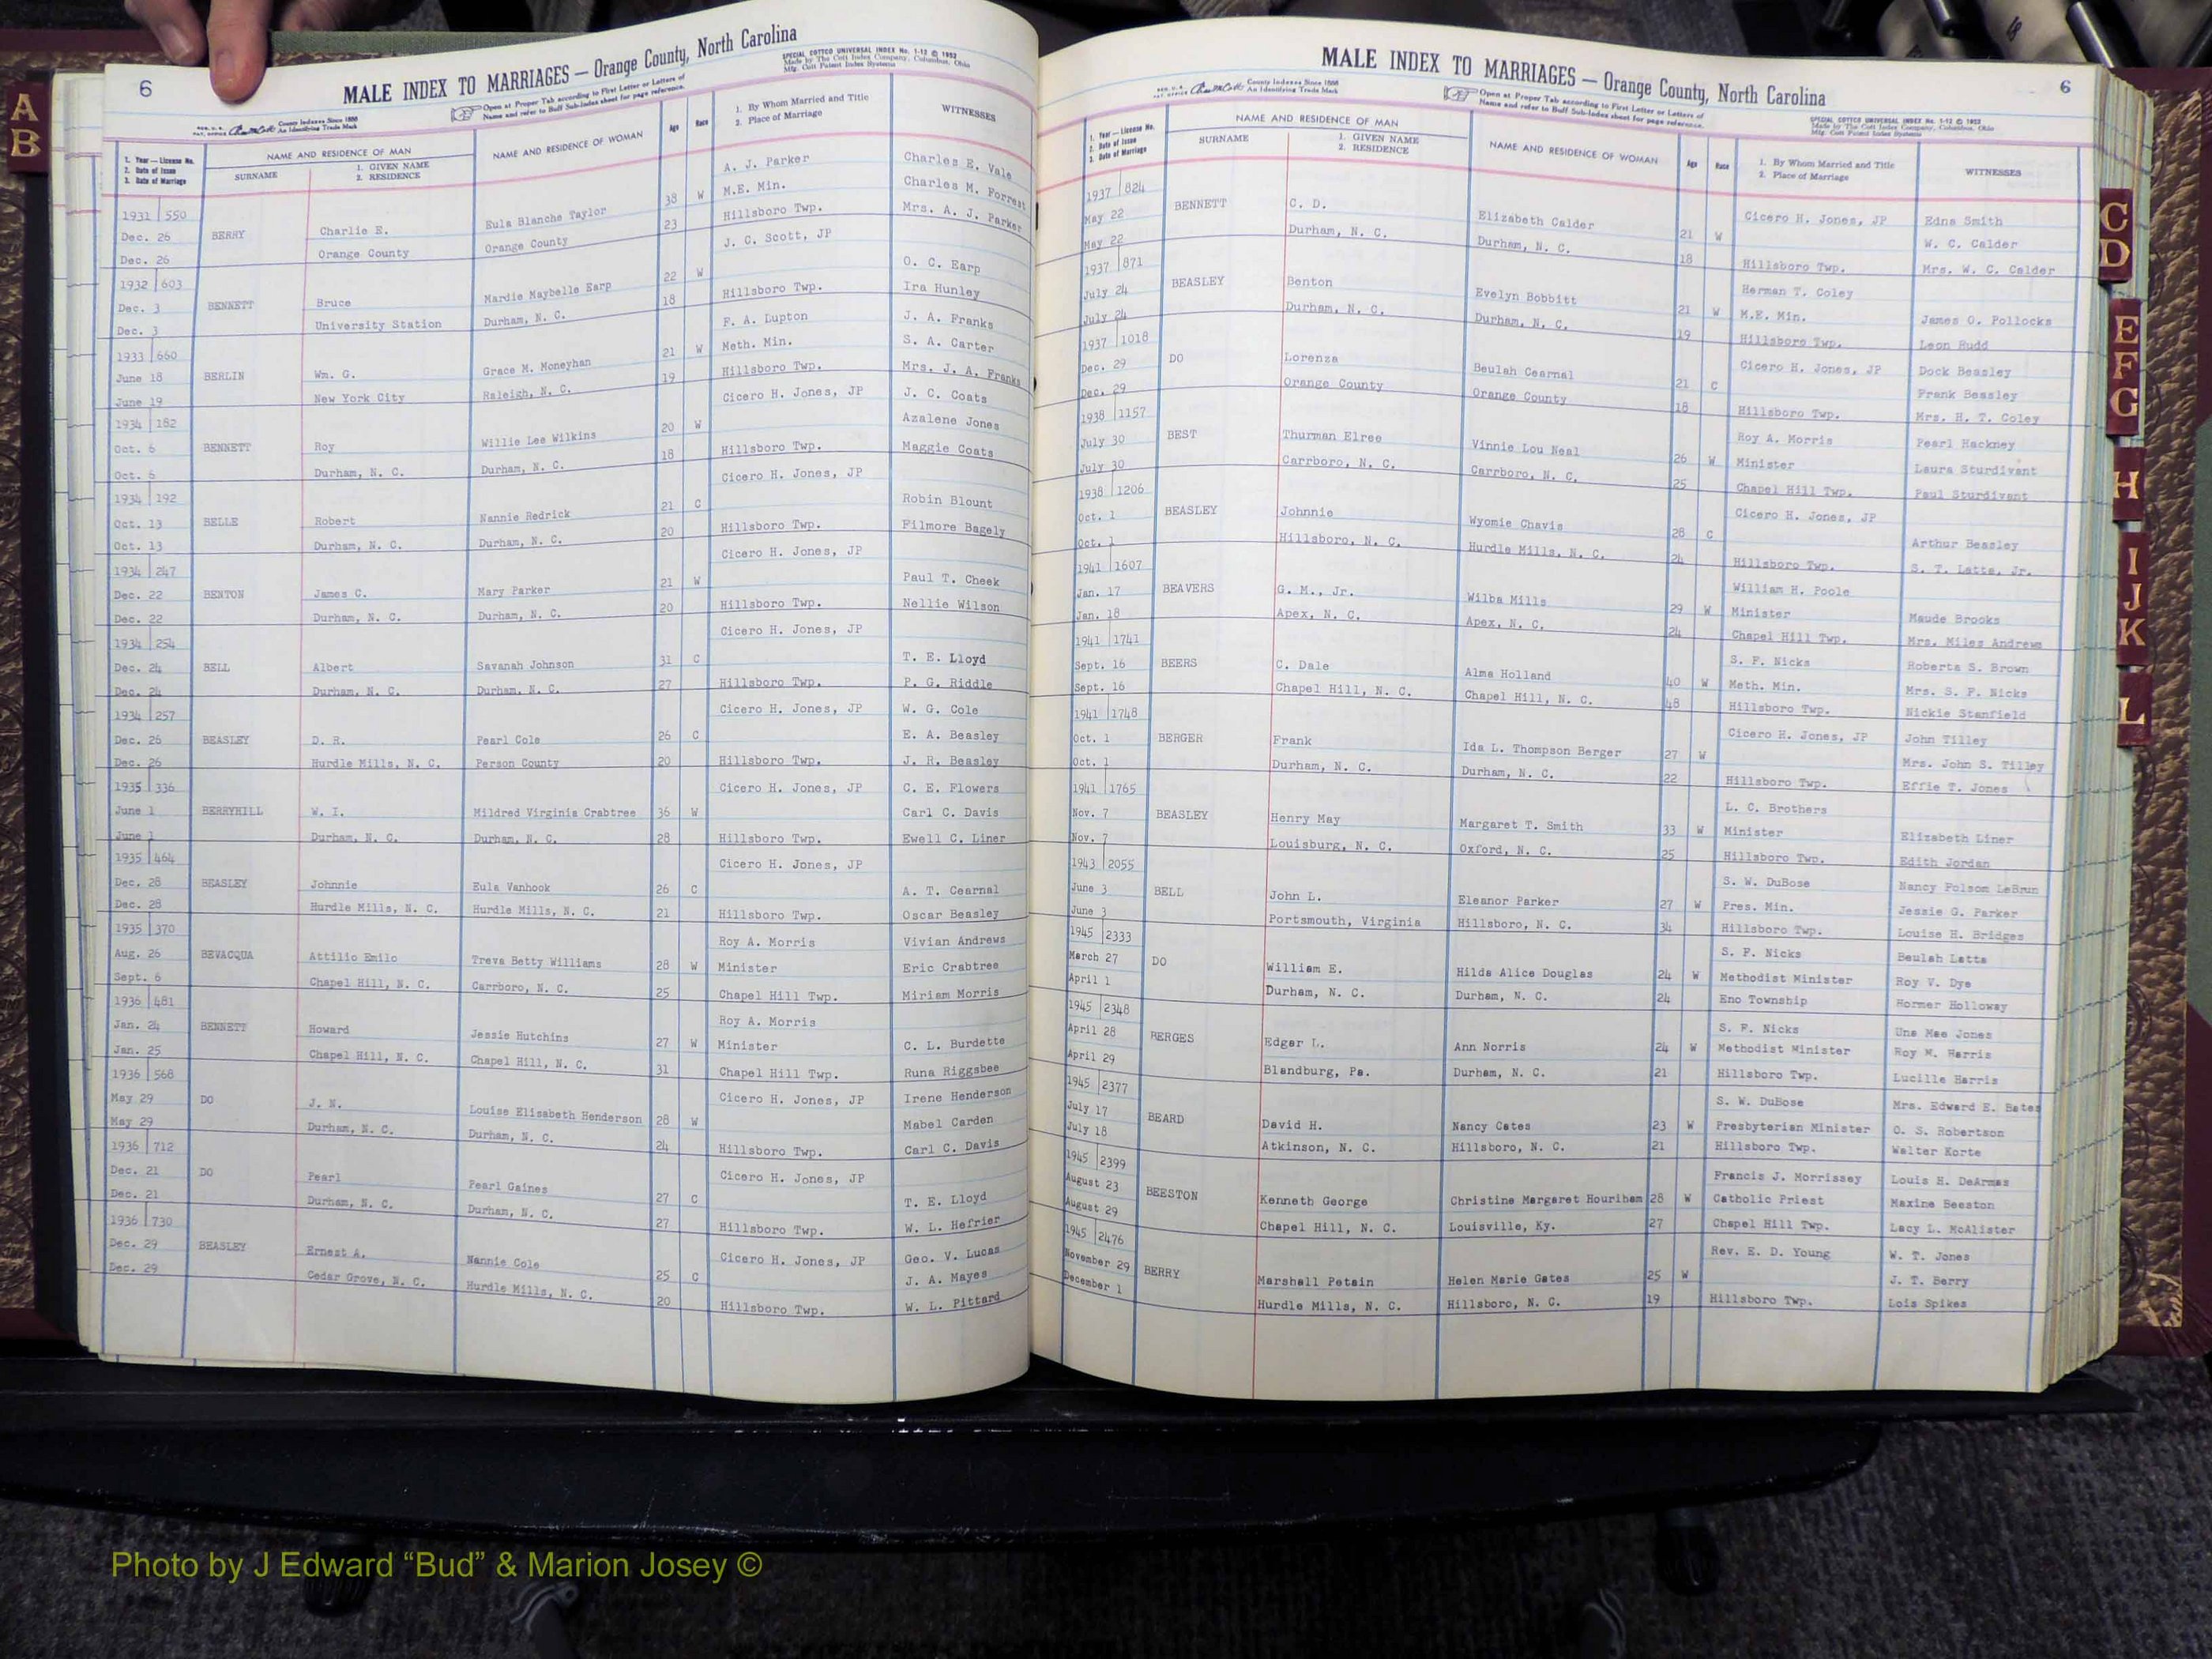 A
B
6
MALE INDEX TO MARRIAGES — Orange County, North Carolina
SPECIAL COTTCO UNIVERSAL INDEX No. 1-12 © 1952
Made by The Cott Index Company, Columbus, Ohio
Mfg. Cott Patent Index Systems
County Indexes Since 1888
An Identifying Trade Mark
Open at Proper Tab according to First Letter or Letters of
Name and refer to Buff Sub-Index sheet for page reference.
1. Year — License No.
2. Date of Issue
3. Date of Marriage
NAME AND RESIDENCE OF MAN
SURNAME
1. GIVEN NAME
2. RESIDENCE
NAME AND RESIDENCE OF WOMAN
Age
Race
1. By Whom Married and Title
2. Place of Marriage
WITNESSES
1931 550 A. J. Parker Charles E. Vale
Dec. 26 BERRY Charlie E. Eula Blanche Taylor 38 W M.E. Min. Charles M. Forrest
Dec. 26 Orange County Orange County 23 Hillsboro Twp. Mrs. A. J. Parker
1932 603 J. C. Scott, JP O. C. Earp
Dec. 3 BENNETT Bruce Mardie Maybelle Earp 22 W Ira Hunley
Dec. 3 University Station Durham, N. C. 18 Hillsboro Twp. J. A. Franks
1933 660 F. A. Lupton S. A. Carter
June 18 BERLIN Wm. G. Grace M. Moneyhan 21 W Meth. Min. Mrs. J. A. Franks
June 19 New York City Raleigh, N. C. 19 Hillsboro Twp. J. C. Coats
1934 182 Cicero H. Jones, JP Azalene Jones
Oct. 6 BENNETT Roy Willie Lee Wilkins 20 W Maggie Coats
Oct. 6 Durham, N. C. Durham, N. C. 18 Hillsboro Twp.
1934 192 Cicero H. Jones, JP
Oct. 13 BELLE Robert Nannie Redrick 21 C Robin Blount
Oct. 13 Durham, N. C. Durham, N. C. 20 Hillsboro Twp. Filmore Bagely
1934 247 Cicero H. Jones, JP
Dec. 22 BENTON James C. Mary Parker 21 W Paul T. Cheek
Dec. 22 Durham, N. C. Durham, N. C. 20 Hillsboro Twp. Nellie Wilson
1934 254 Cicero H. Jones, JP
Dec. 24 BELL Albert Savanah Johnson 31 C T. E. Lloyd
Dec. 24 Durham, N. C. Durham, N. C. 27 Hillsboro Twp. P. G. Riddle
1934 257 Cicero H. Jones, JP W. G. Cole
Dec. 26 BEASLEY D. R. Pearl Cole 26 C E. A. Beasley
Dec. 26 Hurdle Mills, N. C. Person County 20 Hillsboro Twp. J. R. Beasley
1935 336 Cicero H. Jones, JP C. E. Flowers
June 1 BERRYHILL W. I. Mildred Virginia Crabtree 36 W Carl C. Davis
June 1 Durham, N. C. Durham, N. C. 28 Hillsboro Twp. Ewell C. Liner
1935 464 Cicero H. Jones, JP
Dec. 28 BEASLEY Johnnie Eula Vanhook 26 C A. T. Cearnal
Dec. 28 Hurdle Mills, N. C. Hurdle Mills, N. C. 21 Hillsboro Twp. Oscar Beasley
1935 370 Roy A. Morris Vivian Andrews
Aug. 26 BEVACQUA Attilio Emilo Treva Betty Williams 28 W Minister Eric Crabtree
Sept. 6 Chapel Hill, N. C. Carrboro, N. C. 25 Chapel Hill Twp. Miriam Morris
1936 481 Roy A. Morris
Jan. 24 BENNETT Howard Jessie Hutchins 27 W Minister C. L. Burdette
Jan. 25 Chapel Hill, N. C. Chapel Hill, N. C. 31 Chapel Hill Twp. Runa Riggsbee
1936 568 Cicero H. Jones, JP Irene Henderson
May 29 DO J. N. Louise Elisabeth Henderson 28 W Mabel Carden
May 29 Durham, N. C. Durham, N. C. 24 Hillsboro Twp. Carl C. Davis
1936 712 Cicero H. Jones, JP
Dec. 21 DO Pearl Pearl Gaines 27 C T. E. Lloyd
Dec. 21 Durham, N. C. Durham, N. C. 27 Hillsboro Twp. W. L. Hefrier
1936 730 Cicero H. Jones, JP Geo. V. Lucas
Dec. 29 BEASLEY Ernest A. Nannie Cole 25 C J. A. Mayes
Dec. 29 Cedar Grove, N. C. Hurdle Mills, N. C. 20 Hillsboro Twp. W. L. Pittard
MALE INDEX TO MARRIAGES — Orange County, North Carolina
6
County Indexes Since 1888
An Identifying Trade Mark
Open at Proper Tab according to First Letter or Letters of
Name and refer to Buff Sub-Index sheet for page reference.
SPECIAL COTTCO UNIVERSAL INDEX No. 1-12 © 1952
Made by The Cott Index Company, Columbus, Ohio
Mfg. Cott Patent Index Systems
1. Year — License No.
2. Date of Issue
3. Date of Marriage
NAME AND RESIDENCE OF MAN
SURNAME
1. GIVEN NAME
2. RESIDENCE
NAME AND RESIDENCE OF WOMAN
Age
Race
1. By Whom Married and Title
2. Place of Marriage
WITNESSES
1937 824 Cicero H. Jones, JP Edna Smith
May 22 BENNETT C. D. Elizabeth Calder 21 W W. C. Calder
May 22 Durham, N. C. Durham, N. C. 18 Hillsboro Twp. Mrs. W. C. Calder
1937 871 Herman T. Coley
July 24 BEASLEY Benton Evelyn Bobbitt 21 W M.E. Min. James O. Pollocks
July 24 Durham, N. C. Durham, N. C. 19 Hillsboro Twp. Leon Rudd
1937 1018 Cicero H. Jones, JP Dock Beasley
Dec. 29 DO Lorenza Beulah Cearnal 21 C Frank Beasley
Dec. 29 Orange County Orange County 18 Hillsboro Twp. Mrs. H. T. Coley
1938 1157 Roy A. Morris Pearl Hackney
July 30 BEST Thurman Elree Vinnie Lou Neal 26 W Minister Laura Sturdivant
July 30 Carrboro, N. C. Carrboro, N. C. 25 Chapel Hill Twp. Paul Sturdivant
1938 1206 Cicero H. Jones, JP
Oct. 1 BEASLEY Johnnie Wyomie Chavis 28 C Arthur Beasley
Oct. 1 Hillsboro, N. C. Hurdle Mills, N. C. 24 Hillsboro Twp. S. T. Latta, Jr.
1941 1607 William H. Poole
Jan. 17 BEAVERS G. M., Jr. Wilba Mills 29 W Minister Maude Brooks
Jan. 18 Apex, N. C. Apex, N. C. 24 Chapel Hill Twp. Mrs. Miles Andrews
1941 1741 S. F. Nicks Roberta S. Brown
Sept. 16 BEERS C. Dale Alma Holland 40 W Meth. Min. Mrs. S. F. Nicks
Sept. 16 Chapel Hill, N. C. Chapel Hill, N. C. 48 Hillsboro Twp. Nickie Stanfield
1941 1748 Cicero H. Jones, JP John Tilley
Oct. 1 BERGER Frank Ida L. Thompson Berger 27 W Mrs. John S. Tilley
Oct. 1 Durham, N. C. Durham, N. C. 22 Hillsboro Twp. Effie T. Jones
1941 1765 L. C. Brothers
Nov. 7 BEASLEY Henry May Margaret T. Smith 33 W Minister Elizabeth Liner
Nov. 7 Louisburg, N. C. Oxford, N. C. 25 Hillsboro Twp. Edith Jordan
1943 2055 S. W. DuBose Nancy Folsom LeBrun
June 3 BELL John L. Eleanor Parker 27 W Pres. Min. Jessie G. Parker
June 3 Portsmouth, Virginia Hillsboro, N. C. 34 Hillsboro Twp. Louise H. Bridges
1945 2333 S. F. Nicks Beulah Latta
March 27 DO William E. Hilda Alice Douglas 24 W Methodist Minister Roy V. Dye
April 1 Durham, N. C. Durham, N. C. 24 Eno Township Hormer Holloway
1945 2348 S. F. Nicks Una Mae Jones
April 28 BERGES Edgar L. Ann Norris 24 W Methodist Minister Roy M. Harris
April 29 Blandburg, Pa. Durham, N. C. 21 Hillsboro Twp. Lucille Harris
1945 2377 S. W. DuBose Mrs. Edward E. Bates
July 17 BEARD David H. Nancy Cates 23 W Presbyterian Minister O. S. Robertson
July 18 Atkinson, N. C. Hillsboro, N. C. 21 Hillsboro Twp. Walter Korte
1945 2399 Francis J. Morrissey Louis H. DeArmas
August 23 BEESTON Kenneth George Christine Margaret Hourihan 28 W Catholic Priest Maxine Beeston
August 29 Chapel Hill, N. C. Louisville, Ky. 27 Chapel Hill Twp. Lacy L. McAlister
1945 2476 Rev. E. D. Young W. T. Jones
November 29 BERRY Marshall Petain Helen Marie Gates 25 W J. T. Berry
December 1 Hurdle Mills, N. C. Hillsboro, N. C. 19 Hillsboro Twp. Lois Spikes
C
D
E
F
G
H
I
J
K
L
Photo by J Edward “Bud” & Marion Josey ©